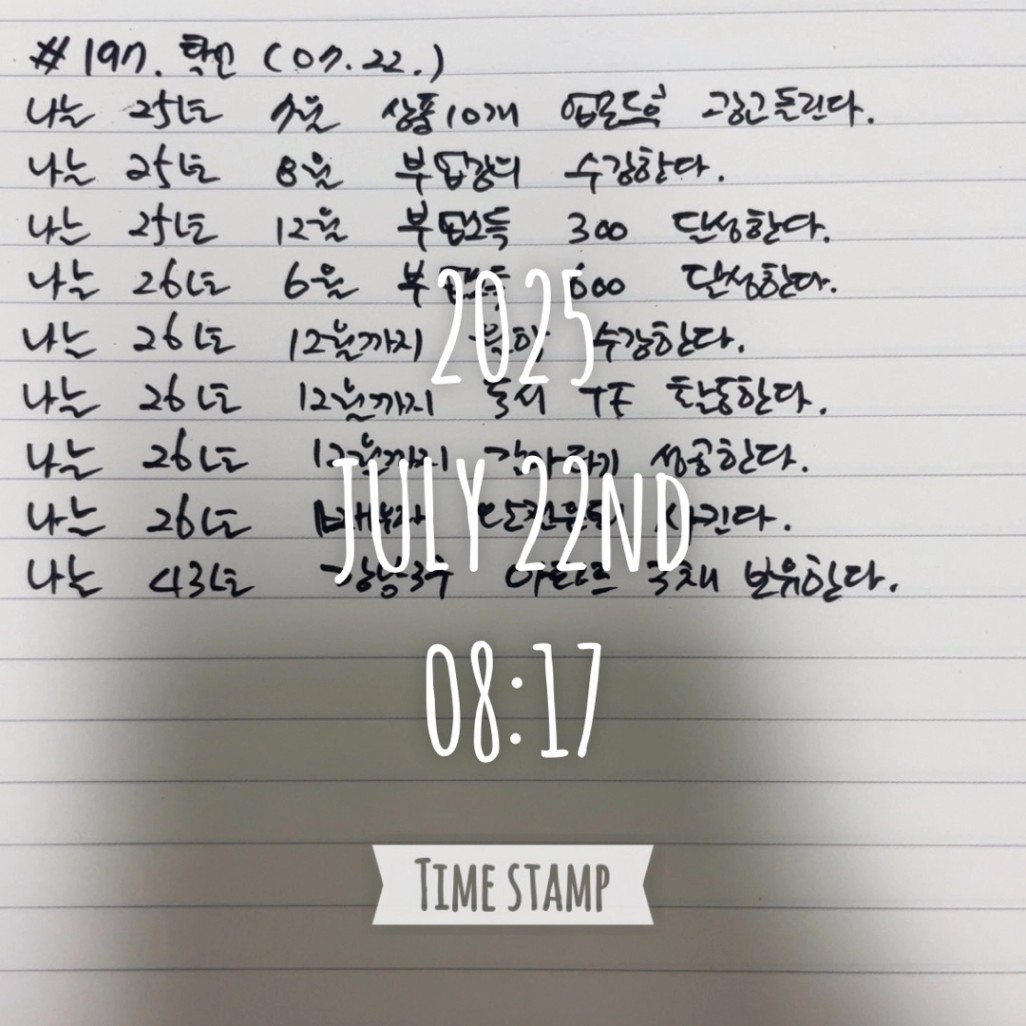 #197. 확언 (07.22.)
나는 25년도 7월 상품10개 업로드후 광고돌린다.
나는 25년도 8월 부업강의 수강한다.
나는 25년도 12월 부업소득 300 달성한다.
나는 26년도 6월 부업소득 600 달성한다.
나는 26년도 12월까지 수강한다.
나는 26년도 12월까지 독서 TF 활동한다.
나는 26년도 12월까지 성공한다.
나는 26년도
나는 43년도 강남3구 아파트 3채 보유한다.
2025
JULY 22ND
08:17
TIME STAMP